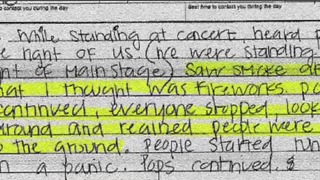 to contact you during the day Best time to contact you during the day
While standing at concert heard
right of us (we were standing
of main stage) Saw smoke
what I thought was fireworks
continued, everyone stopped, look
around and realized people were
the ground. People started
in a panic. Pops continued.